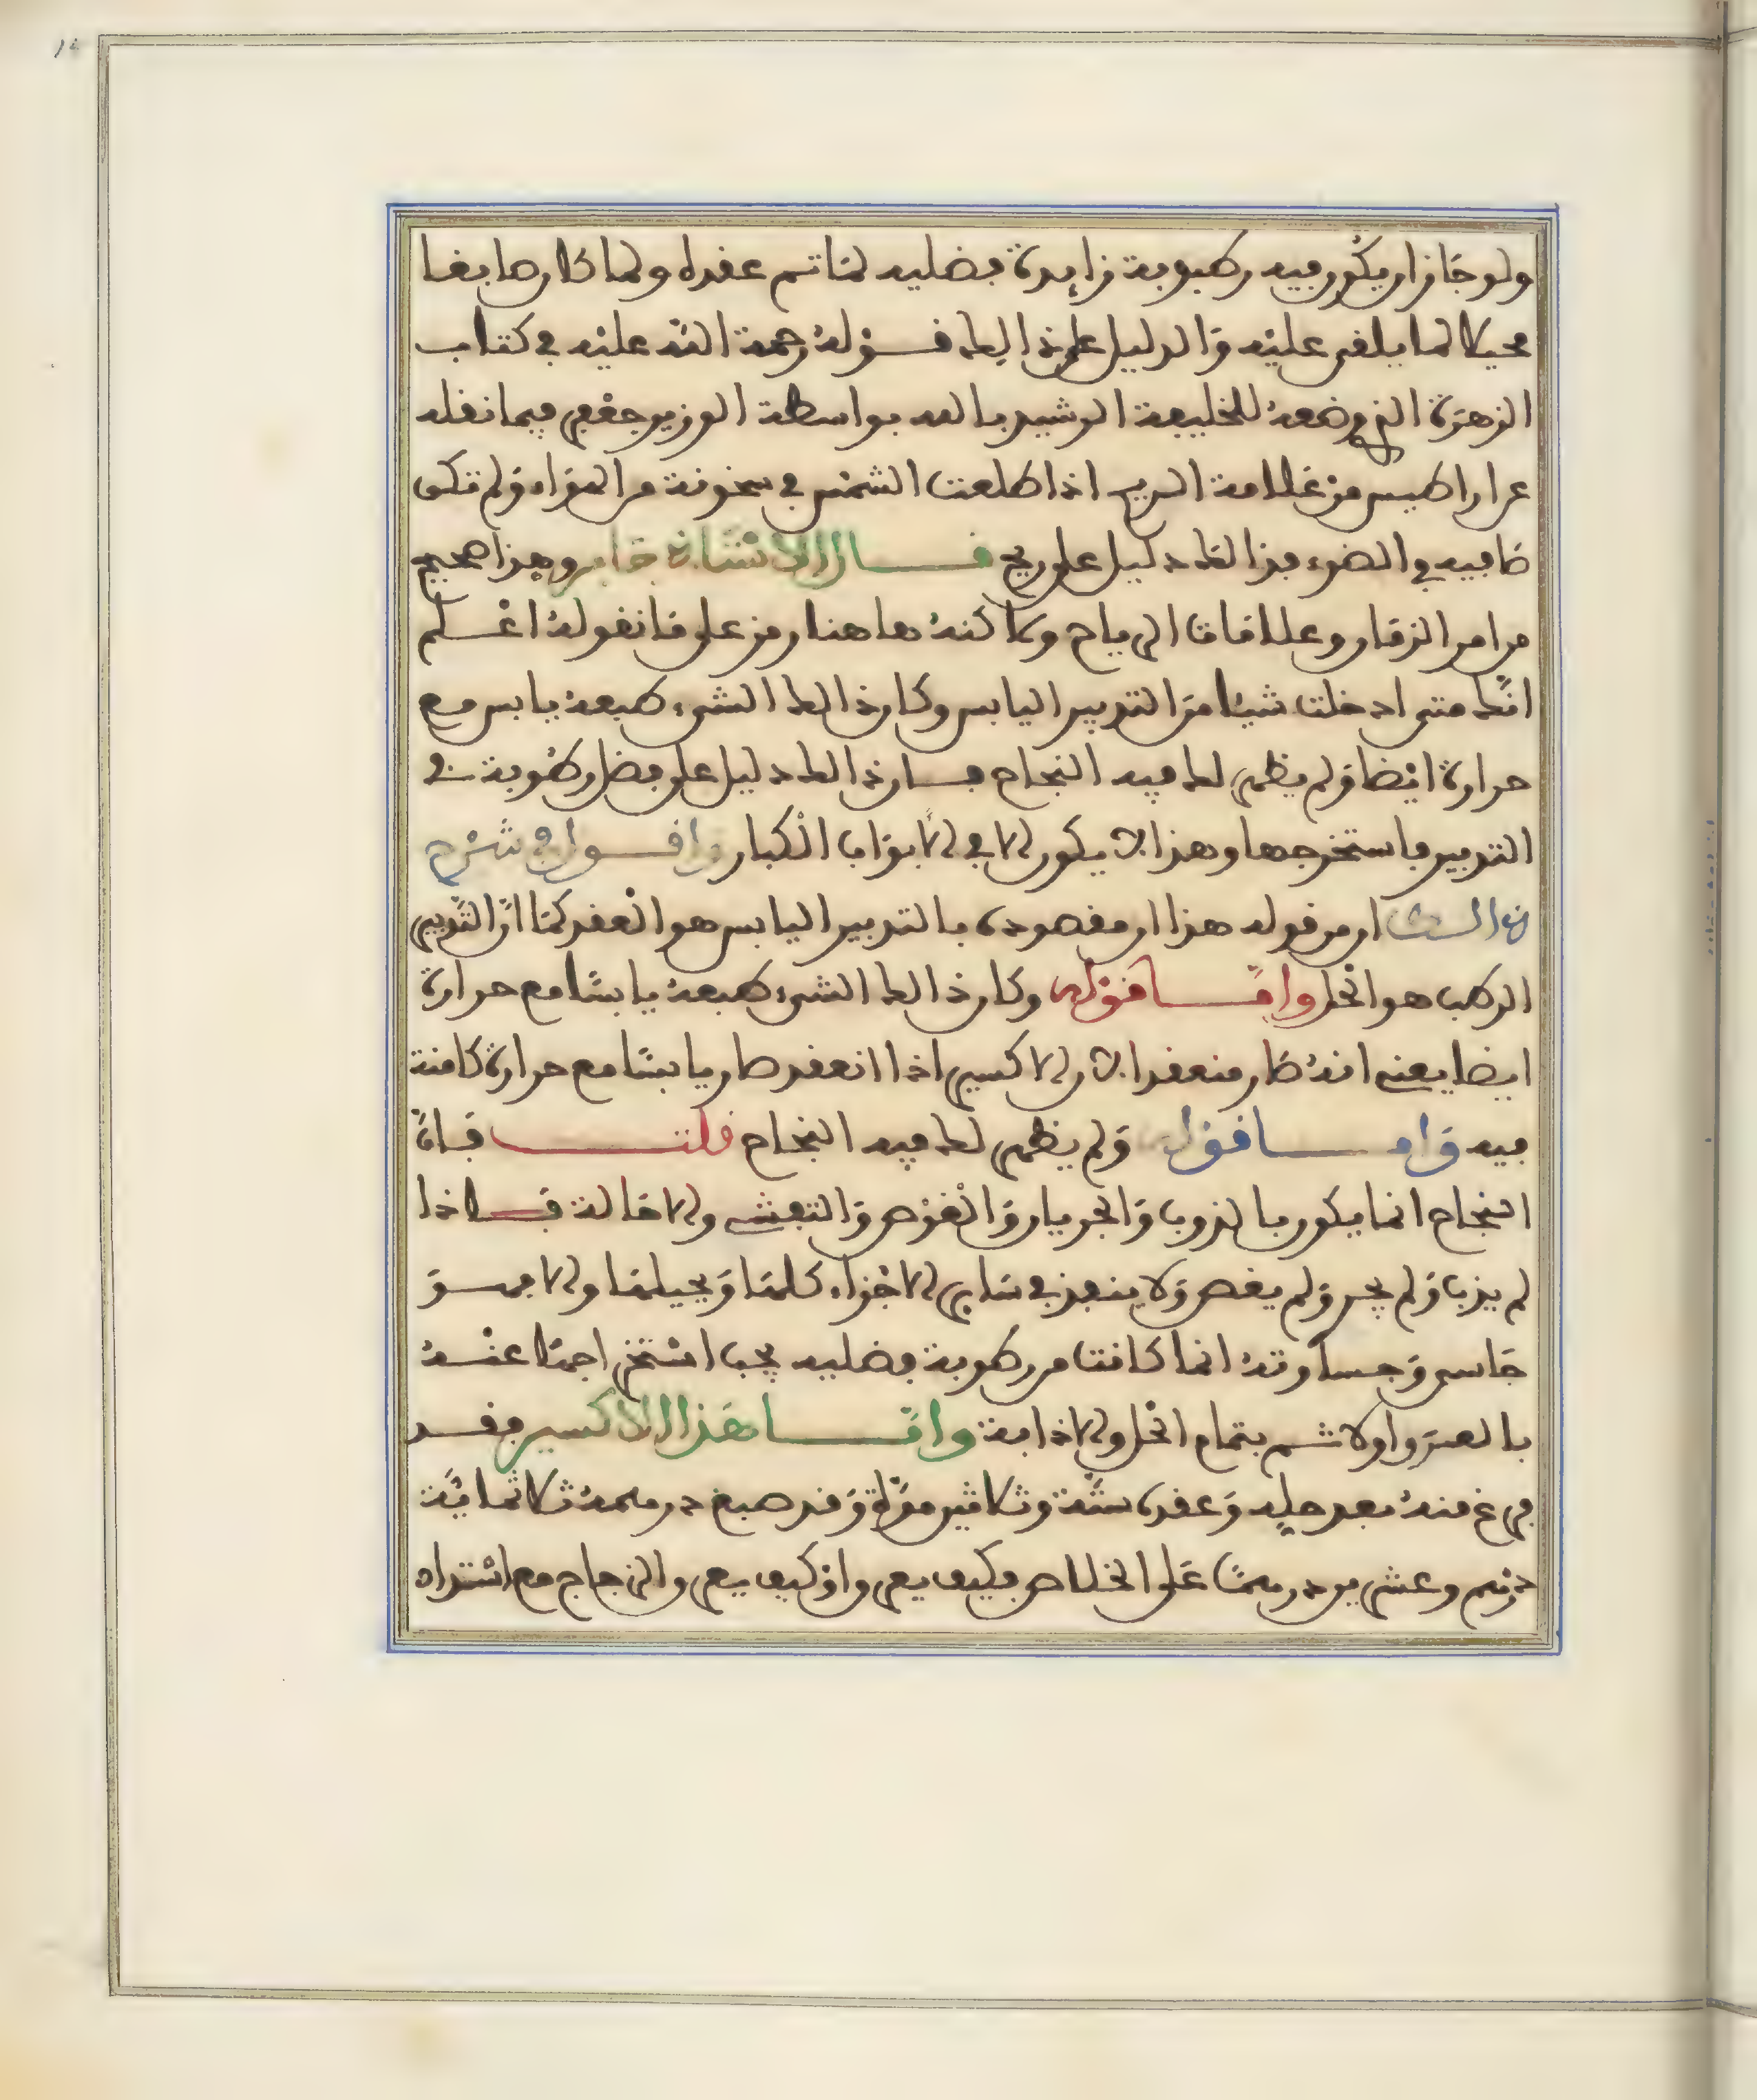 ولو جاز ان يكون فيه رطوبة زايدة فضليه لما تم عقده ولما كان صابغا
محيلا لما يلقى عليه والدليل على ذالك قوله رحمة الله عليه في كتاب
الزهرة الذي وضعه للخليفة الرشيد بالله بواسطة الوزير جعفر فيما نقله
عن اراطيس من علامة الريح اذا طلعت الشمس في سخونة من الهواء ولم تكن
صافيه في الضوء فذالك دليل على ريح قال الاستاذ جابر وهذا صحيح
من امر الزمان وعلامات الرياح ولاكنه هاهنا رمز على ما نقوله اعلم
انك متى ادخلت شيئا من التدبير اليابس وكان ذالك الشيء طبعه يابس مع
حرارة ايضا ولم يظهر لك فيه النجاح فان ذالك دليل على فضل رطوبة في
التدبير فاستخرجها وهذا لا يكون الا في الابواب الكبار واقول في شرح
ذالك ان من قوله هذا ان مقصوده بالتدبير اليابس هو العقد كما ان التدبير
الرطب هو الحل واما قوله وكان ذالك الشيء طبعه يابسا مع حرارة
ايضا يعني انه صار منعقدا لان الاكسير اذا انعقد صار يابسا مع حرارة كامنة
فيه واما قوله ولم يظهر لك فيه النجاح قلت فان
النجاح انما يكون بالذوب والجريان والغوص والتفشي والاحالة فاذا
لم يذب ولم يجر ولم يغص ولا ينفذ في ساير الاجزاء كلها ويحيلها والا فهو
جاسي وجساوته انما كانت من رطوبة فضليه يجب استخراجها عنه
بالعزو اولا ثم بتمام الحل والاذابة واما هذا الاكسير فقد
فرغ منه بعد حله وعقده ستة وثلاثين مرة وقد صبغ درهمه ثلاثماية
درهم وعشرين درهما على الخلاص فكيف يعزو او كيف يعزو الزجاج مع اشتداد